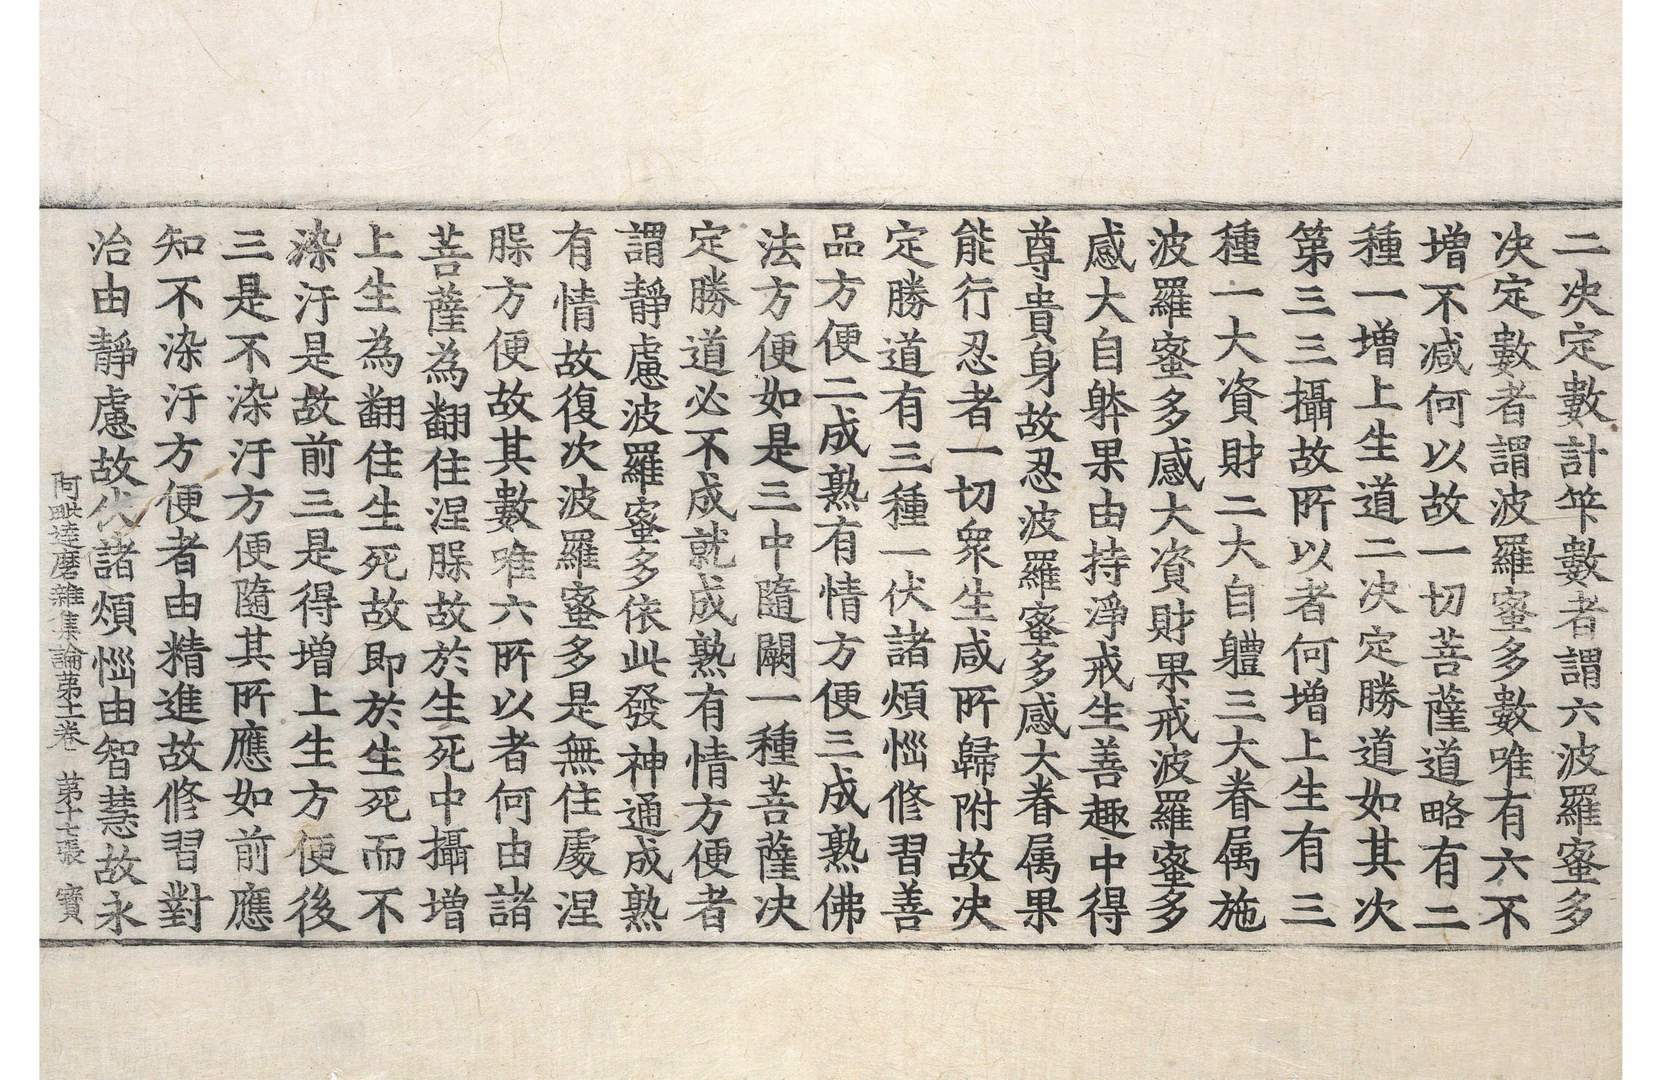 二决定數計筭數者謂六波羅蜜多
决定數者謂波羅蜜多數唯有六不
增不减何以故一切菩薩道略有二
種一增上生道二决定勝道如其次
第三三攝故所以者何增上生有三
種一大資財二大自軆三大眷属施
波羅蜜多感大資財果戒波羅蜜多
感大自躰果由持淨戒生善趣中得
尊貴身故忍波羅蜜多感大眷属果
能行忍者一切衆生咸所歸附故决
定勝道有三種一伏諸煩惱修習善
品方便二成熟有情方便三成熟佛
法方便如是三中隨闕一種菩薩决
定勝道必不成就成熟有情方便者
謂靜慮波羅蜜多依此發神通成熟
有情故復次波羅蜜多是無住處涅
脵方便故其數唯六所以者何由諸
菩薩為翻住涅脵故於生死中攝增
上生為翻住生死故即於生死而不
染汙是故前三是得增上生方便後
三是不染汙方便隨其所應如前應
知不染汙方便者由精進故修習對
治由靜慮故伏諸煩惱由智慧故永
阿毗達磨雜集論苐十一卷 苐十七張 寶